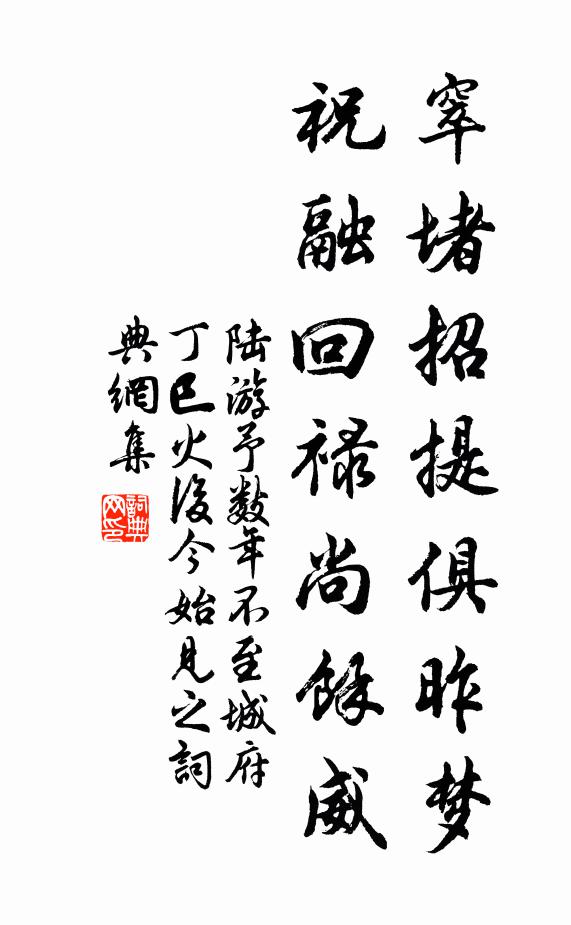 窣堵招提俱昨梦
祝融回禄尚馀威
陆游予数年不至城府
丁巳火後今始见之詞
典網集
詞典网印